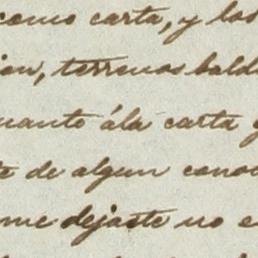 como carta, y los
ion, terrenos baldi
uanto ála carta q
te de algun cono
me dejaste no e